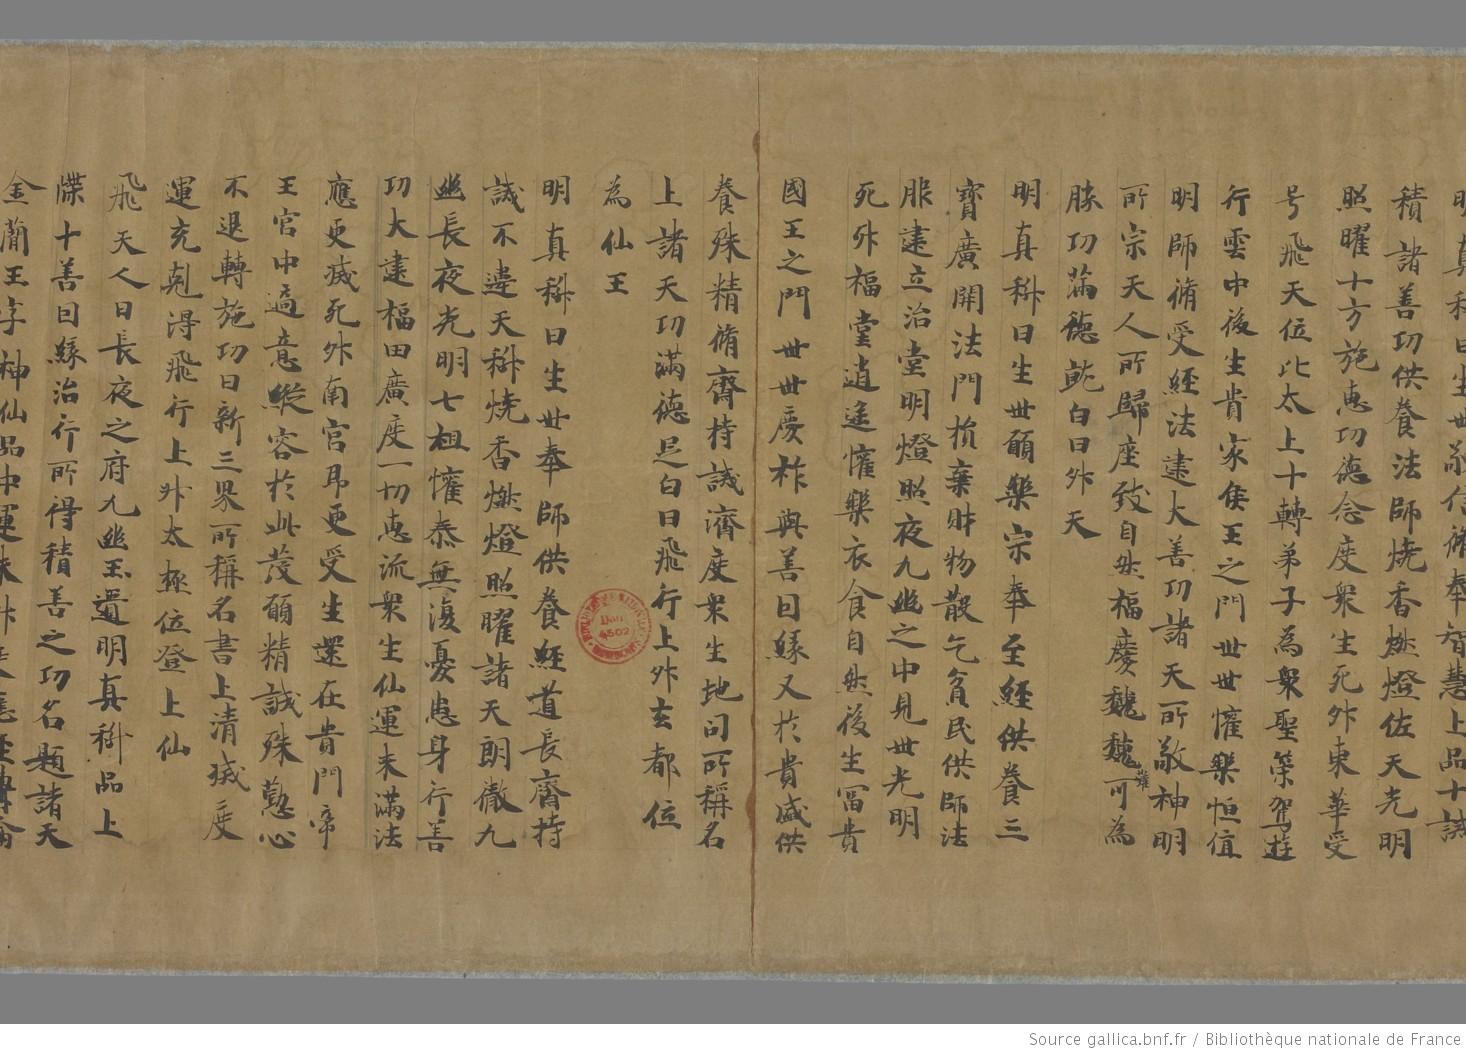 明真科曰生世敬信脩奉智慧上品十誡
積諸善功供養法師燒香燃燈佐天光明
照曜十方施惠功德念度衆生死昇東華受
号飛天位比太上十轉弟子為衆聖策駕遊
行雲中後生貴家侯王之門世世懽樂恒值
明師脩受經法建大善功諸天所敬神明
所宗天人所歸座致自然福慶巍巍難可為
勝功滿德就白日昇天
明真科曰生世願樂宗奉至經供養三
寶廣開法門損棄財物散乞貧民供師法
服建立治堂明燈照夜九幽之中見世光明
死昇福堂逍遙懽樂衣食自然後生冨貴
國王之門世世慶祚與善因緣又於貴盛供
養殊精脩齋持誡濟度衆生地司所稱名
上諸天功滿德足白日飛行上昇玄都位
為仙王
明真科曰生世奉師供養經道長齋持
誡不違天科燒香燃燈照曜諸天朗徹九
幽長夜光明七祖懽泰無復憂患身行善
功大建福田廣度一切惠流衆生仙運未滿法
應更滅死昇南宮即更受生還在貴門帝
王宮中適意縱容於此發願精誠殊懃心
不退轉施功日新三界所稱名書上清滅度
運充剋得飛行上昇太極位登上仙
飛天人曰長夜之府九幽玉匱明真科品上
牒十善因緣治行所得積善之功名題諸天
金蘭玉字神仙品中運
Don 4502
Source gallica.bnf.fr / Bibliothèque nationale de France